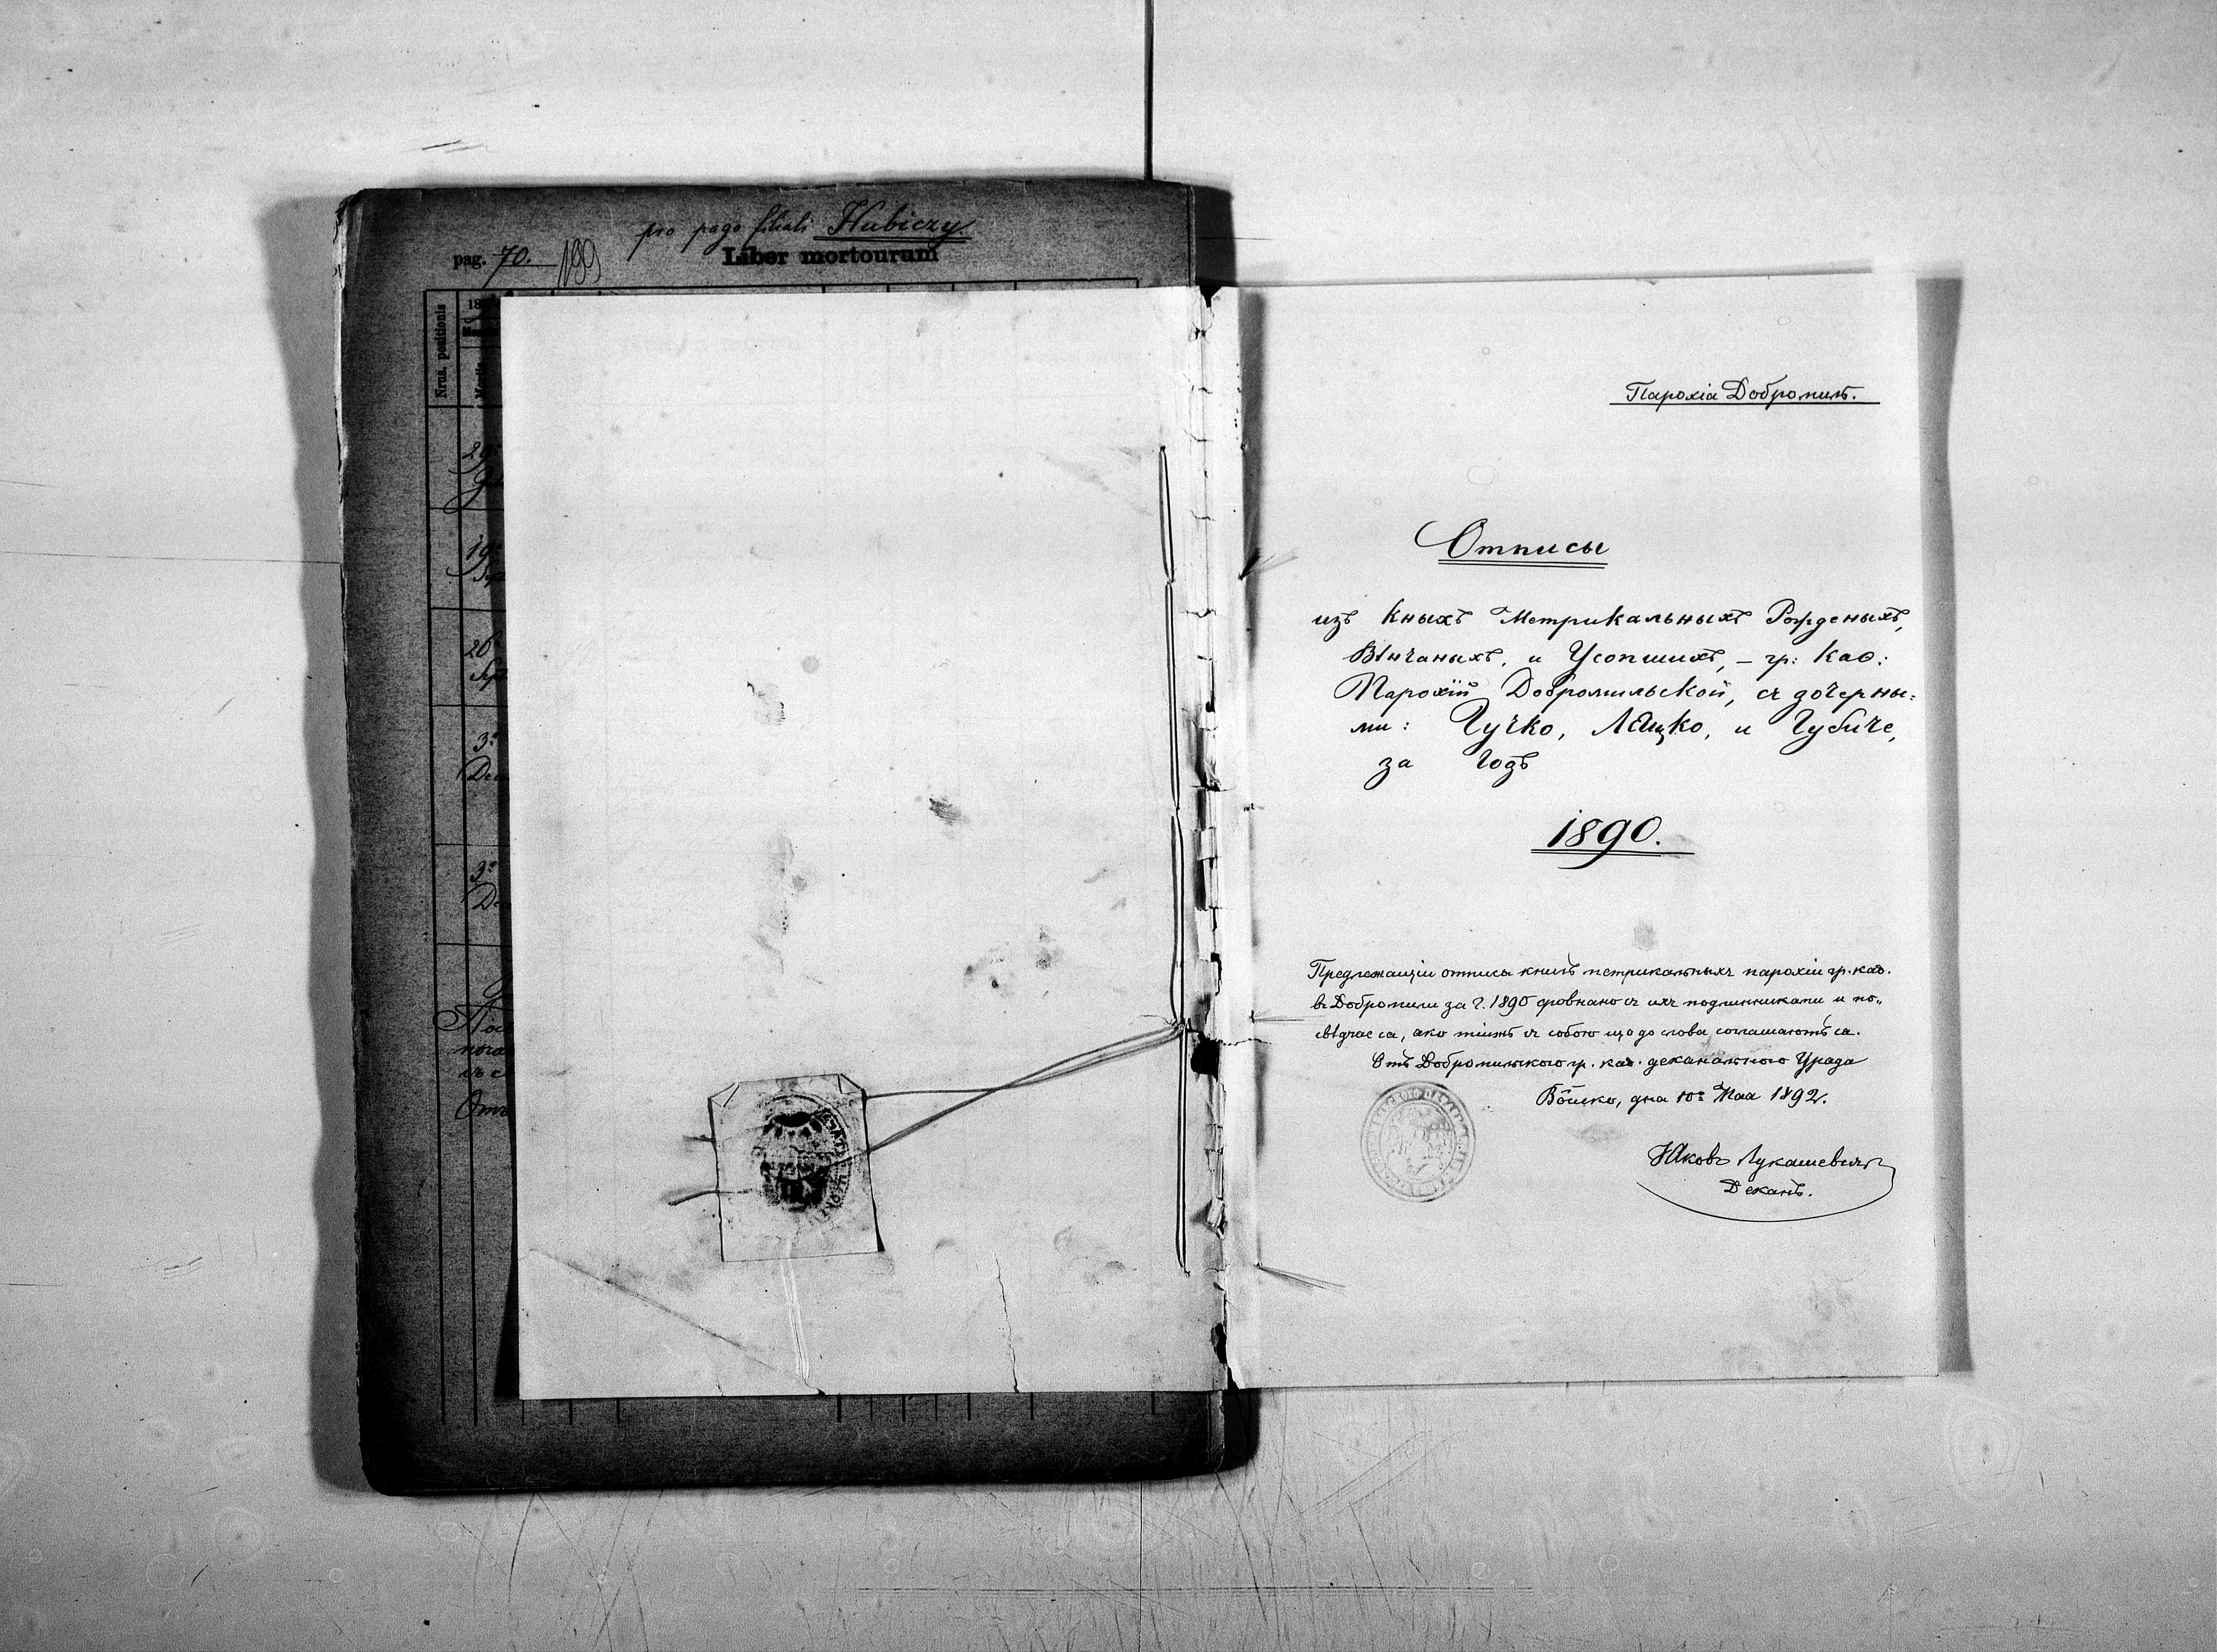 pro pago filiali Hubiczy.
pag. 70. 199
Liber mortourum
Nrus. positionis
18
19ª
Sep
26ª
Sept
3ª
Dec
3ª
De
Парохіа Добромиль.
Отписы
изъ Кныхъ Метрикальныхъ Рожденыхъ,
Вѣнчаныхъ, и Усопшихъ, – гр: Каѳ:
Парохїй Добромильской, съ дочерны=
ми: Гучко, Ляцко, и Губиче,
за годъ
1890.
Предлежащіи отписы книгъ метрикальныхъ парохіи гр. каѳ.
въ Добромили за г. 1890 зровнано съ ихъ подлинниками и по„
свѣдчае са, ако тіижъ съ собою що до слова соглашаютъ са.
Отъ Добромильского гр. каѳ. деканального Урада
Бôлеко, дна 10º Маа 1892.
Іаковъ Лукашевичъ
Деканъ.